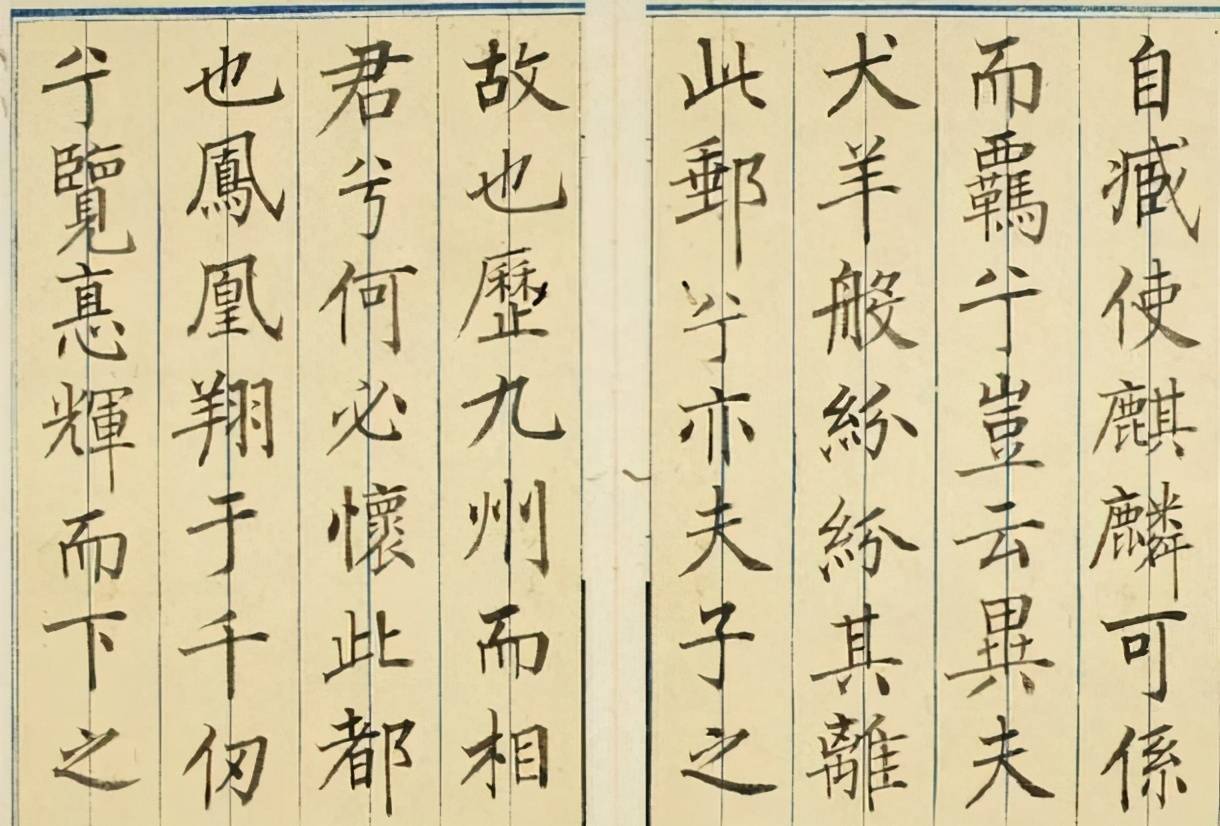 自臧使麒麟可係
而羈兮豈云異夫
犬羊般紛紛其離
此郵兮亦夫子之
故也歷九州而相
君兮何必懷此都
也鳳凰翔于千仞
兮覽惪輝而下之